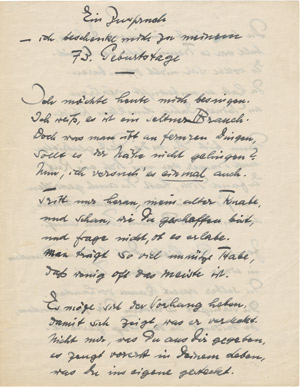 Ein Zuspruch
— ich beschenke mich zu meinem
73. Geburtstage
Ich möchte heute mich besingen.
Ich weiß, es ist ein seltner Brauch.
Doch was man übt an fernren Dingen,
sollt es der Nähe nicht gelingen?
Nun, ich versuch es einmal auch.
Tritt nur heran, mein alter Knabe,
und schau, wie Du geschaffen bist,
und frage nicht, ob es erlabe.
Man trägt so viel unnütze Habe,
daß wenig oft das meiste ist.
Es möge sich der Vorhang heben,
damit sich zeigt, was er verdeckt.
Nicht nur, was Du aus Dir gegeben,
es zeugt vorerst in Deinem Leben,
was Du ins eigne gesteckt.